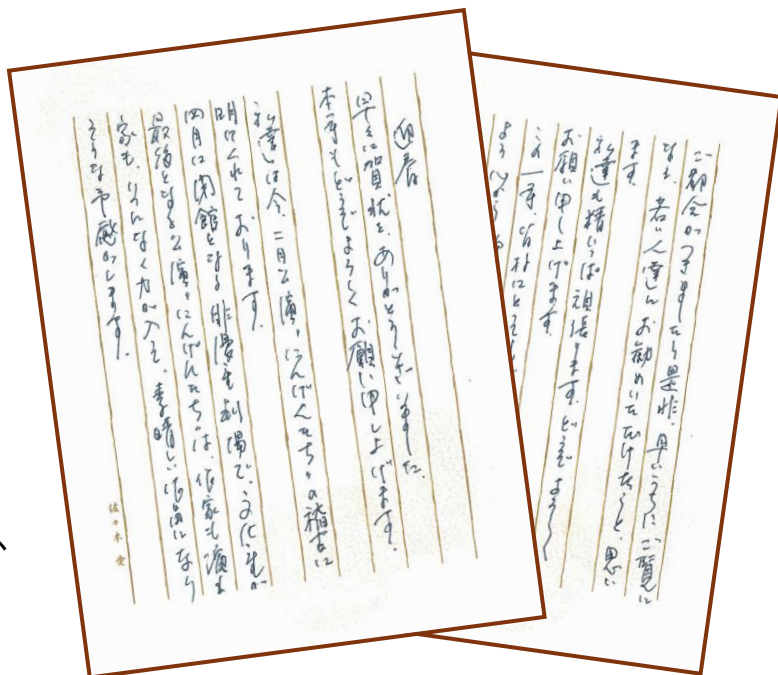 迎春
早々に賀状を、ありがとうございました、
本年もどうぞよろしくお願い申し上げます。
私達は今、二月公演〃にんげんたち〃の稽古に
明けくれております。
四月に閉館となる俳優座劇場で、文化座が
最後となる公演〃にんげんたち〃は、作家も演出
家も、いつになく力が入って、素晴しい作品になり
そうな予感がします。
佐々木 愛
ご都合がつきましたら是非、早いうちにご覧に
なって、若い人達にお勧めいただけたらと、思い
ます。
私達も精いっぱい頑張ります。どうぞよろしく
お願い申し上げます。
この一年、皆様にとって
よう心から